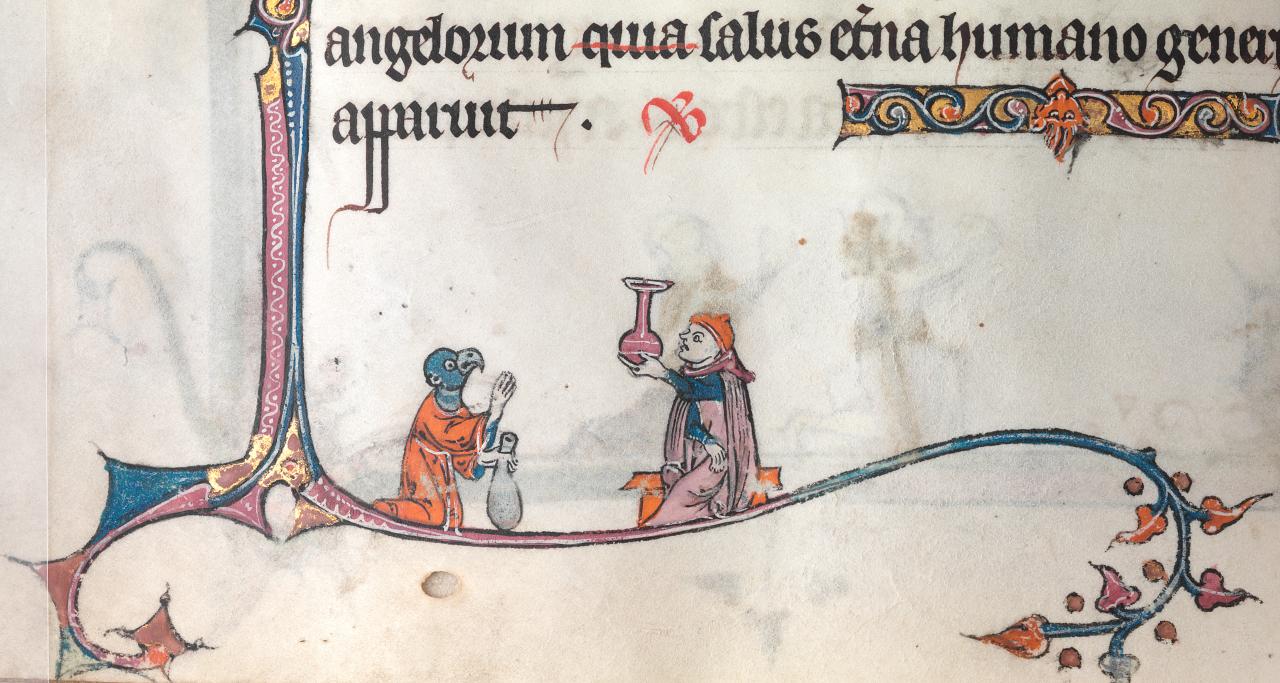 angelorum quia salus et̃na humano gener
apparuit .